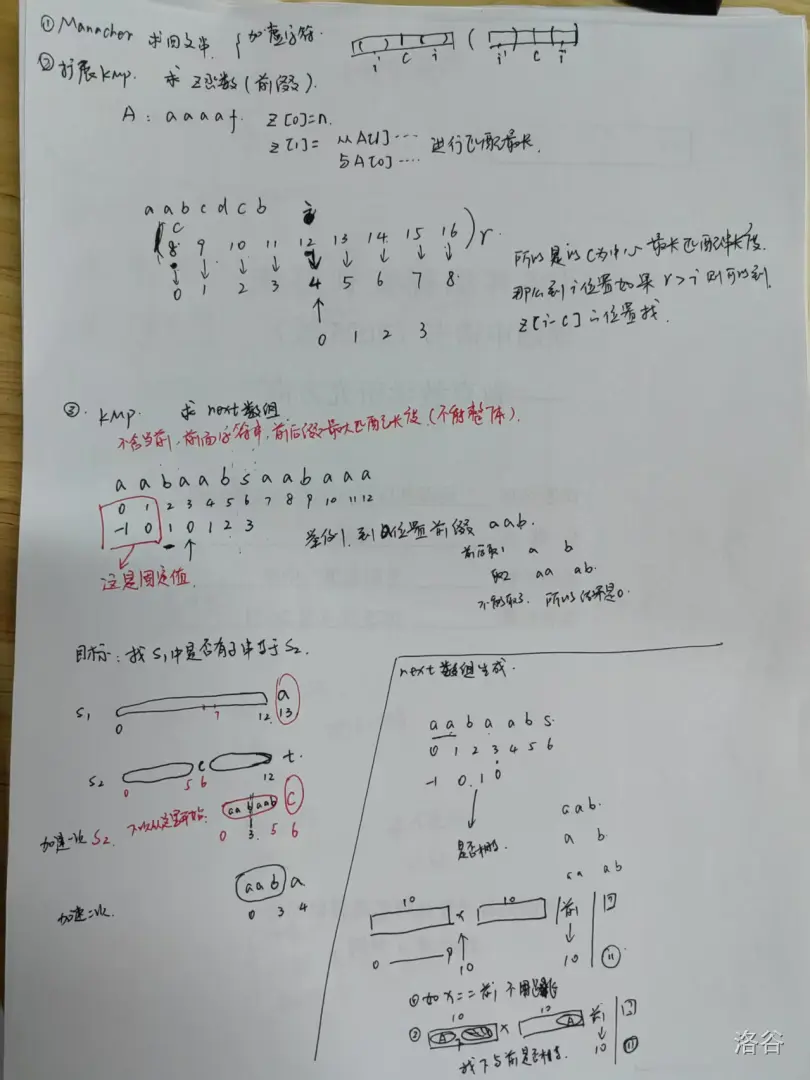 ① Manacher 求回文串 { 加虚字符.
i' c i
i' c i
② 扩展KMP. 求 Z函数(前缀).
A: a a a a f. Z[0]=n.
Z[1]= 以A[1]....
与A[0].... 进行匹配最长.
a a b c d c b i
c
8 9 10 11 12 13 14 15 16 ) r
0 1 2 3 4 5 6 7 8
0 1 2 3
所以是以C为中心最长匹配串长度.
那么到i位置如果 r>i 则可以到
Z[i-c] 位置找.
③. KMP. 求 next数组
不含当前,前面字符串,前后缀最大匹配长度.(不能整体).
a a b a a b s a a b a a a
0 1 2 3 4 5 6 7 8 9 10 11 12
-1 0 1 0 1 2 3
这是固定值.
到 位置 前缀 aab.
前后取1 a b
取2 aa ab.
不能取3. 所以结果是0.
目标: 找 S1中是否有子串等于S2.
S1 a
0 7 12 13
S2 c t.
0 5 6 12
加速一次 S2. aa b aab C
0 3 5 6
加速二次. aab a
0 3 4
next数组生成.
a a b a a b s.
0 1 2 3 4 5 6
-1 0 1 0
是否相等.
a a b.
a b
aa ab
10 x 10 前1
0 9 10 10 11
① 如 x == 前1
10 x 前1
② A A 10 11
找 与前是否相等.
洛谷